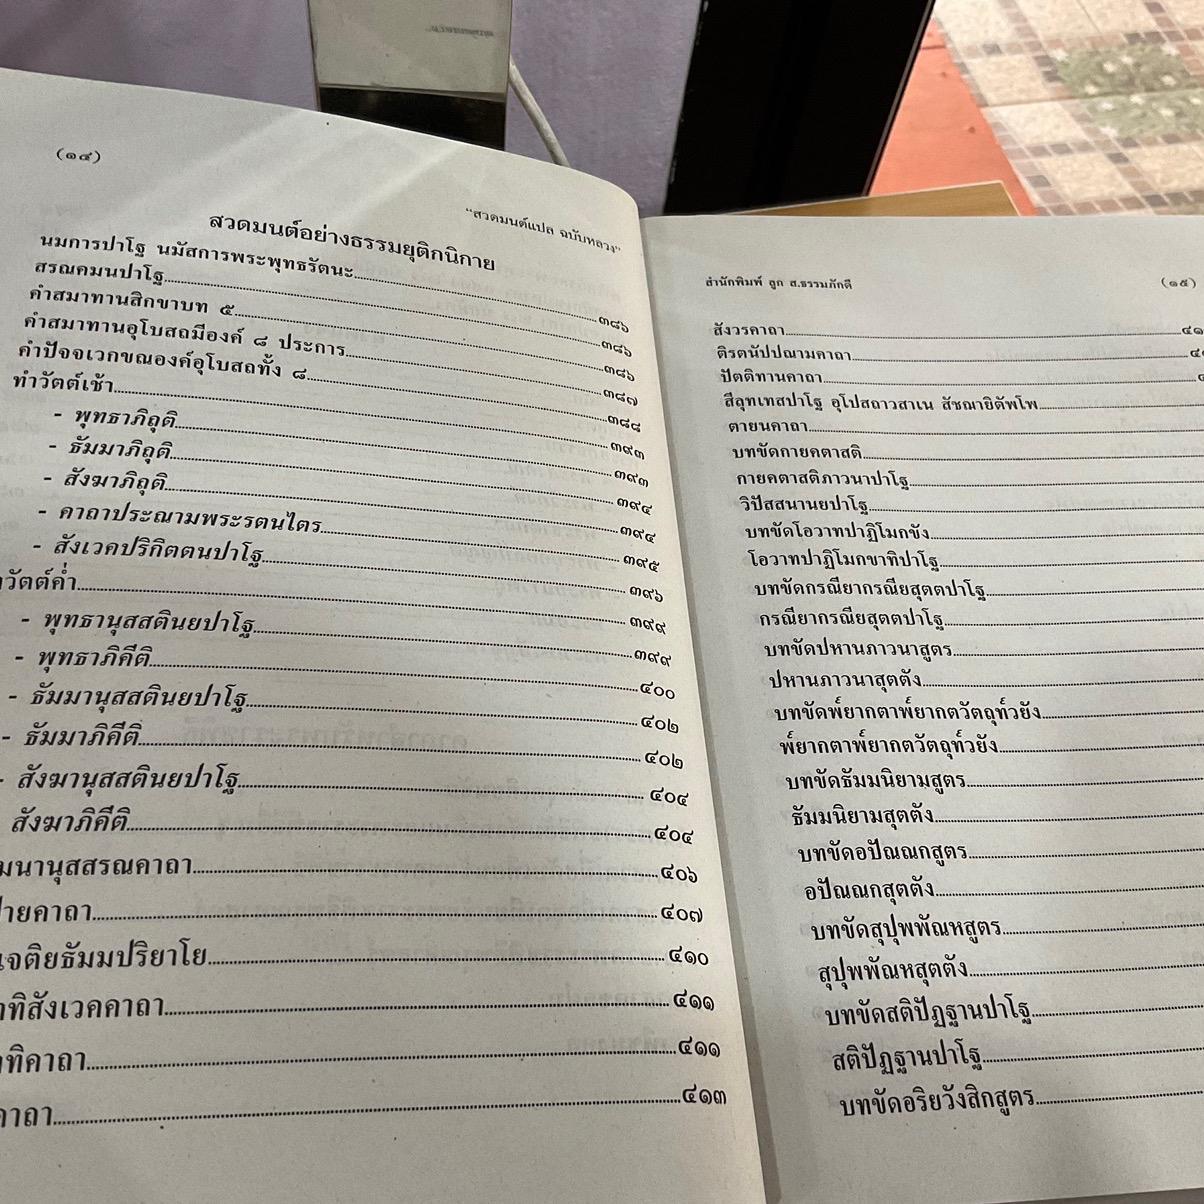 (๑๔)
"สวดมนต์แปล ฉบับหลวง"
สวดมนต์อย่างธรรมยุติกนิกาย
นมการปาโฐ นมัสการพระพุทธรัตนะ ๓๘๖
สรณคมนปาโฐ ๓๘๖
คำสมาทานสิกขาบท ๕ ๓๘๖
คำสมาทานอุโบสถมีองค์ ๘ ประการ ๓๘๗
คำปัจจเวกขณองค์อุโบสถทั้ง ๘ ๓๘๘
ทำวัตต์เช้า ๓๙๓
- พุทธาภิถุติ ๓๙๓
- ธัมมาภิถุติ ๓๙๔
- สังฆาภิถุติ ๓๙๔
- คาถาประณามพระรตนไตร ๓๙๕
- สังเวคปริกิตตนปาโฐ ๓๙๖
วัตต์ค่ำ ๓๙๙
- พุทธานุสสตินยปาโฐ ๓๙๙
- พุทธาภิคีติ ๔๐๐
- ธัมมานุสสตินยปาโฐ ๔๐๒
- ธัมมาภิคีติ ๔๐๒
- สังฆานุสสตินยปาโฐ ๔๐๔
สังฆาภิคีติ ๔๐๔
มนานุสสรณคาถา ๔๐๖
ายคาถา ๔๐๗
เจติยธัมมปริยาโย ๔๑๐
าทิสังเวคคาถา ๔๑๑
าทิคาถา ๔๑๑
คาถา ๔๑๓
สำนักพิมพ์ ลูก ส.ธรรมภักดี (๑๕)
สังวรคาถา ๔๑
ติรตนัปปณามคาถา
ปัตติทานคาถา
สีลุทเทสปาโฐ อุโปสถาวสาเน สัชฌายิตัพโพ
ตายนคาถา
บทขัดกายคตาสติ
กายคตาสติภาวนาปาโฐ
วิปัสสนานยปาโฐ
บทขัดโอวาทปาฏิโมกขัง
โอวาทปาฏิโมกขาทิปาโฐ
บทขัดกรณียากรณียสุตตปาโฐ
กรณียากรณียสุตตปาโฐ
บทขัดปหานภาวนาสูตร
ปหานภาวนาสุตตัง
บทขัดพ๎ยากตาพ๎ยากตวัตถุท๎วยัง
พ๎ยากตาพ๎ยากตวัตถุท๎วยัง
บทขัดธัมมนิยามสูตร
ธัมมนิยามสุตตัง
บทขัดอปัณณกสูตร
อปัณณกสุตตัง
บทขัดสุปุพพัณหสูตร
สุปุพพัณหสุตตัง
บทขัดสติปัฏฐานปาโฐ
สติปัฏฐานปาโฐ
บทขัดอริยวังสิกสูตร